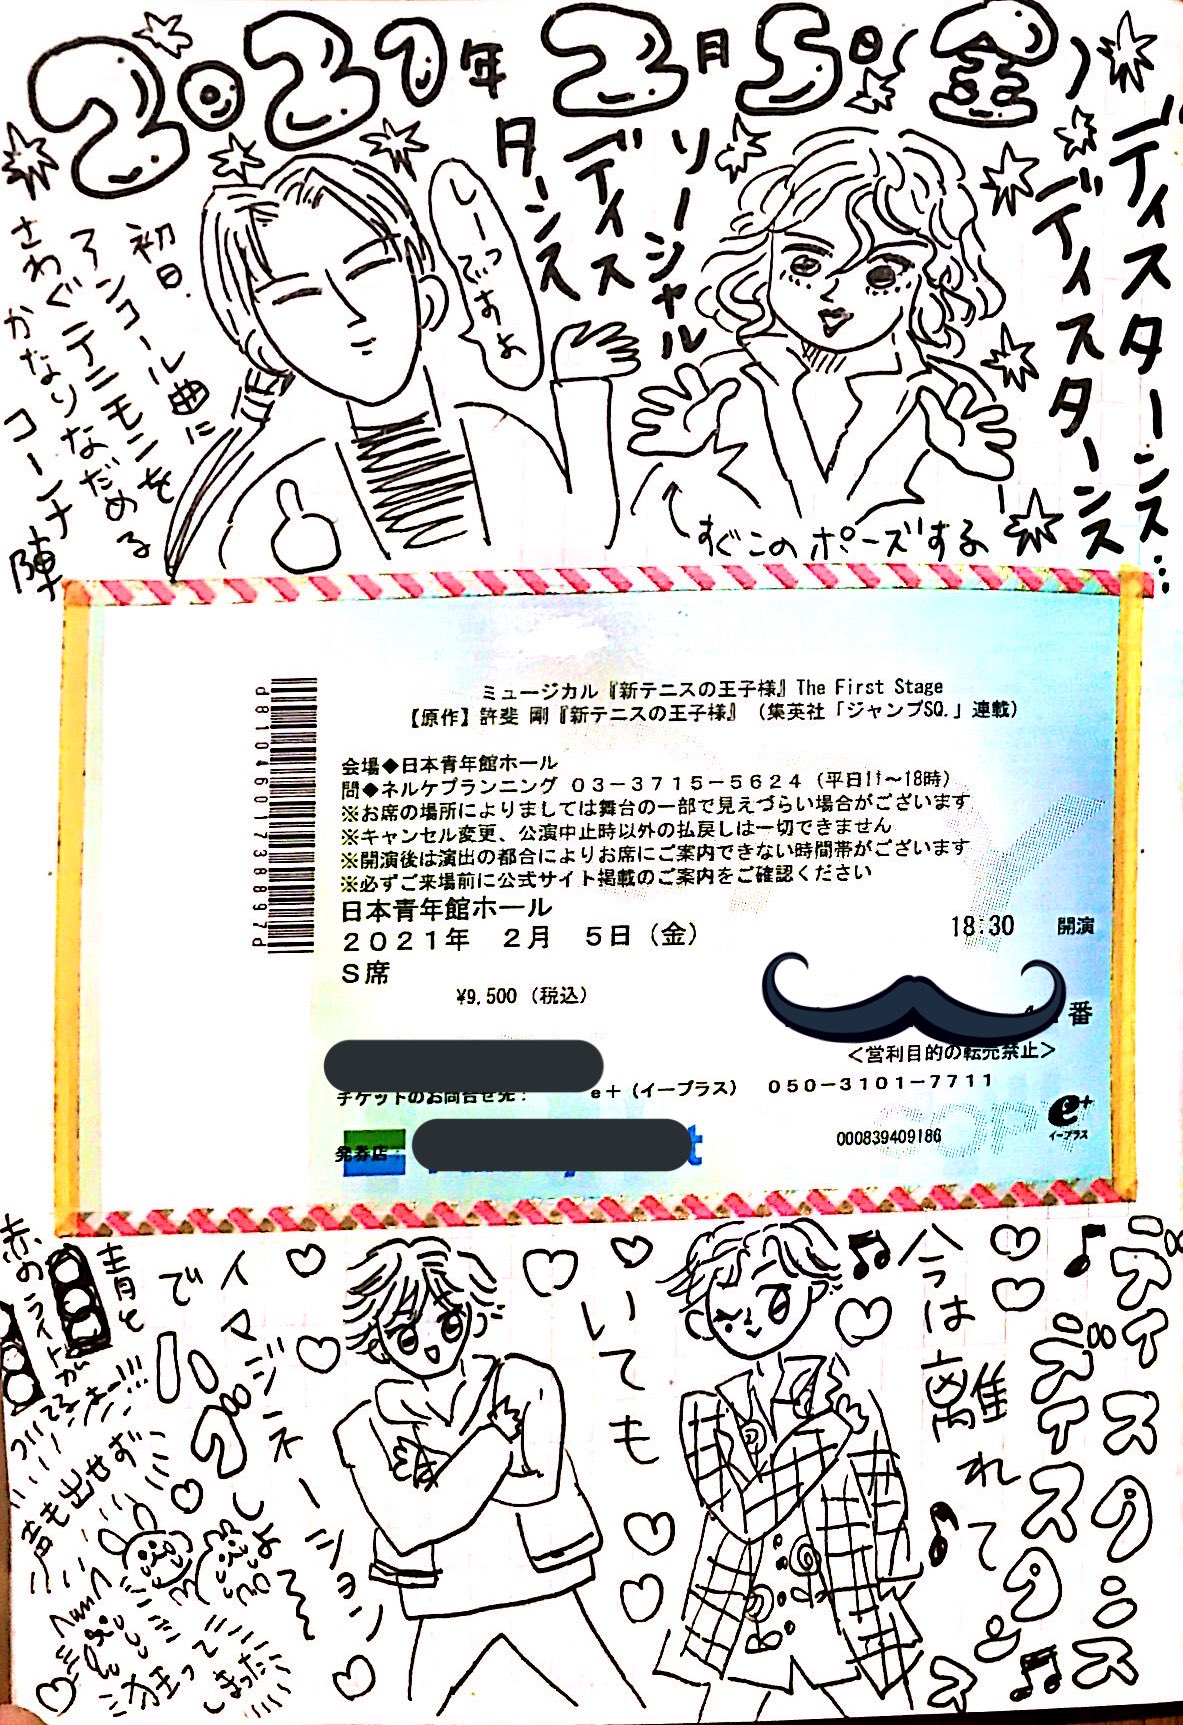 2021年2月5日(金)
ディスターンス…
ディスターンス
ソーシャル
ディス
ターンス
しーっ
ですよ
初日
アンコール曲に
さわぐテニモンを
かなりなだめる
コーチ陣
すぐこのポーズする
ミュージカル『新テニスの王子様』The First Stage
【原作】許斐 剛『新テニスの王子様』（集英社「ジャンプSQ.」連載）
会場◆日本青年館ホール
問◆ネルケプランニング ０３－３７１５－５６２４（平日11～18時）
※お席の場所によりましては舞台の一部で見えづらい場合がございます
※キャンセル変更、公演中止時以外の払戻しは一切できません
※開演後は演出の都合によりお席にご案内できない時間帯がございます
※必ずご来場前に公式サイト掲載のご案内をご確認ください
日本青年館ホール
２０２１年　２月　５日（金）
18:30 開演
Ｓ席
¥9,500（税込）
番
＜営利目的の転売禁止＞
チケットのお問合せ先：
e＋（イープラス）　０５０－３１０１－７７１１
発券店：
000839409186
e+
イープラス
d81046017388897d
ディスタンス
ディスタンス
今は離れて
いても
イマジネーション
でハグしよ〜
青と
赤のライトが
ついてるよー!!!
声も出せず
狂って
しまった